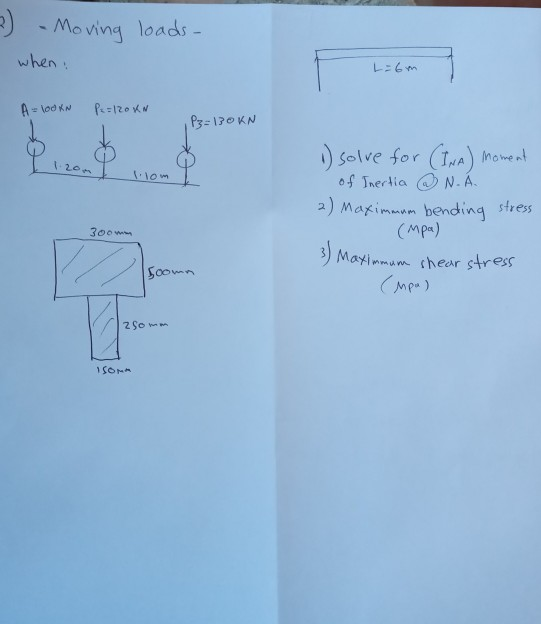 2) - Moving loads -
when:
P1=100KN P2=120KN
P3=130KN
1.20m 1.10m
300mm
500mm
250mm
150mm
L=6m
1) solve for (INA) Moment
of Inertia @ N.A.
2) Maximmum bending stress
(Mpa)
3) Maximmum shear stress
(Mpa)